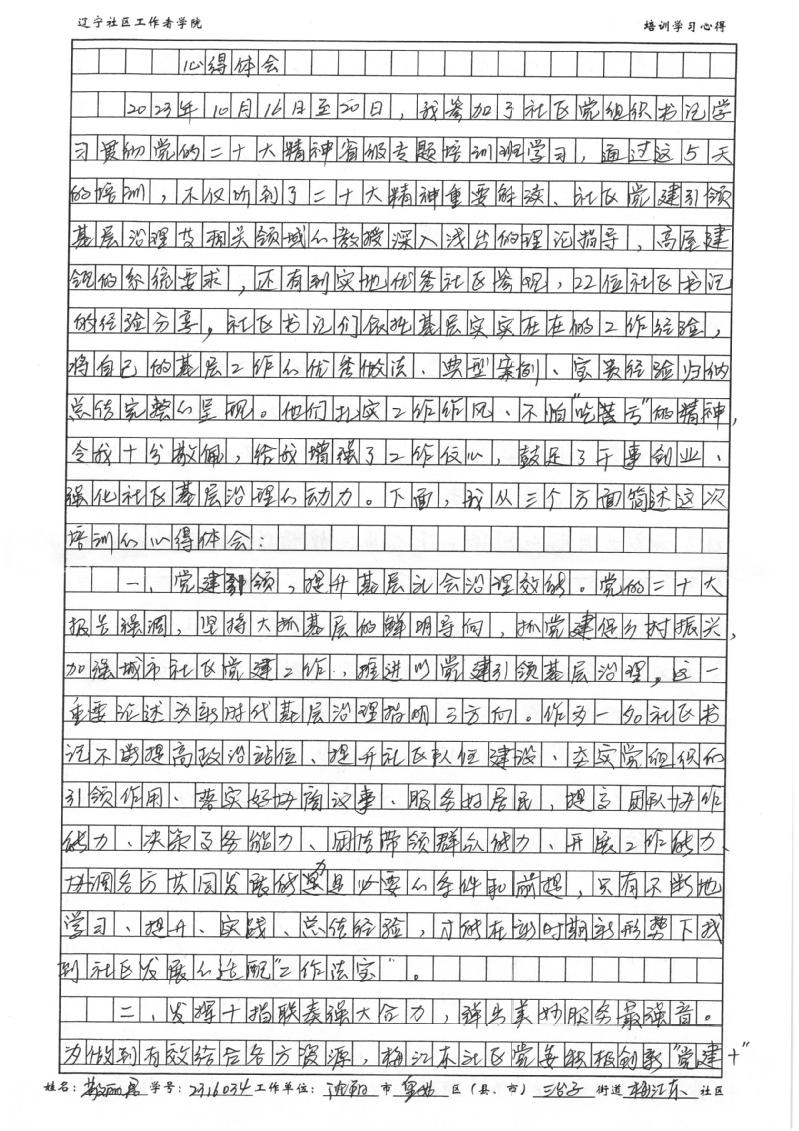 辽宁社区工作者学院 培训学习心得
心得体会
2023年10月16日至20日，我参加了社区党组织书记学
习贯彻党的二十大精神省级专题培训班学习，通过这5天
的培训，不仅听到了二十大精神重要解读、社区党建引领
基层治理及相关领域的教授深入浅出的理论指导，高屋建
瓴的系统要求，还有到实地优秀社区参观，22位社区书记
的经验分享，社区书记们依托基层实实在在的工作经验，
将自己的基层工作的优秀做法、典型案例、宝贵经验归纳
总结完整的呈现。他们扎实工作作风、不怕"吃苦亏"的精神，
令我十分敬佩，给我增强了工作信心，鼓足了干事创业、
强化社区基层治理的动力。下面，我从三个方面简述这次
培训的心得体会：
一、党建引领，提升基层社会治理效能。党的二十大
报告强调，坚持大抓基层的鲜明导向，抓党建促乡村振兴，
加强城市社区党建工作，推进以党建引领基层治理，这一
重要论述为新时代基层治理指明了方向。作为一名社区书
记不断提高政治站位、提升社区队伍建设、夯实党组织的
引领作用、落实好协商议事、服务好居民，提高团队协作
能力、决策及务能力、团结带领群众能力、开展工作能力、
协调各方共同发展能力是必要的条件和前提，只有不断地
学习、提升、实践、总结经验，才能在新时期新形势下找
到社区发展的适配"工作法宝"。
二、发挥十指联奏强大合力，弹出美妙服务最强音。
为做到有效结合各方资源，梅江东社区党委积极创新"党建+"
姓名： 学号：2316034 工作单位：沈阳 市 皇姑 区（县、市） 三台子 街道 梅江东 社区